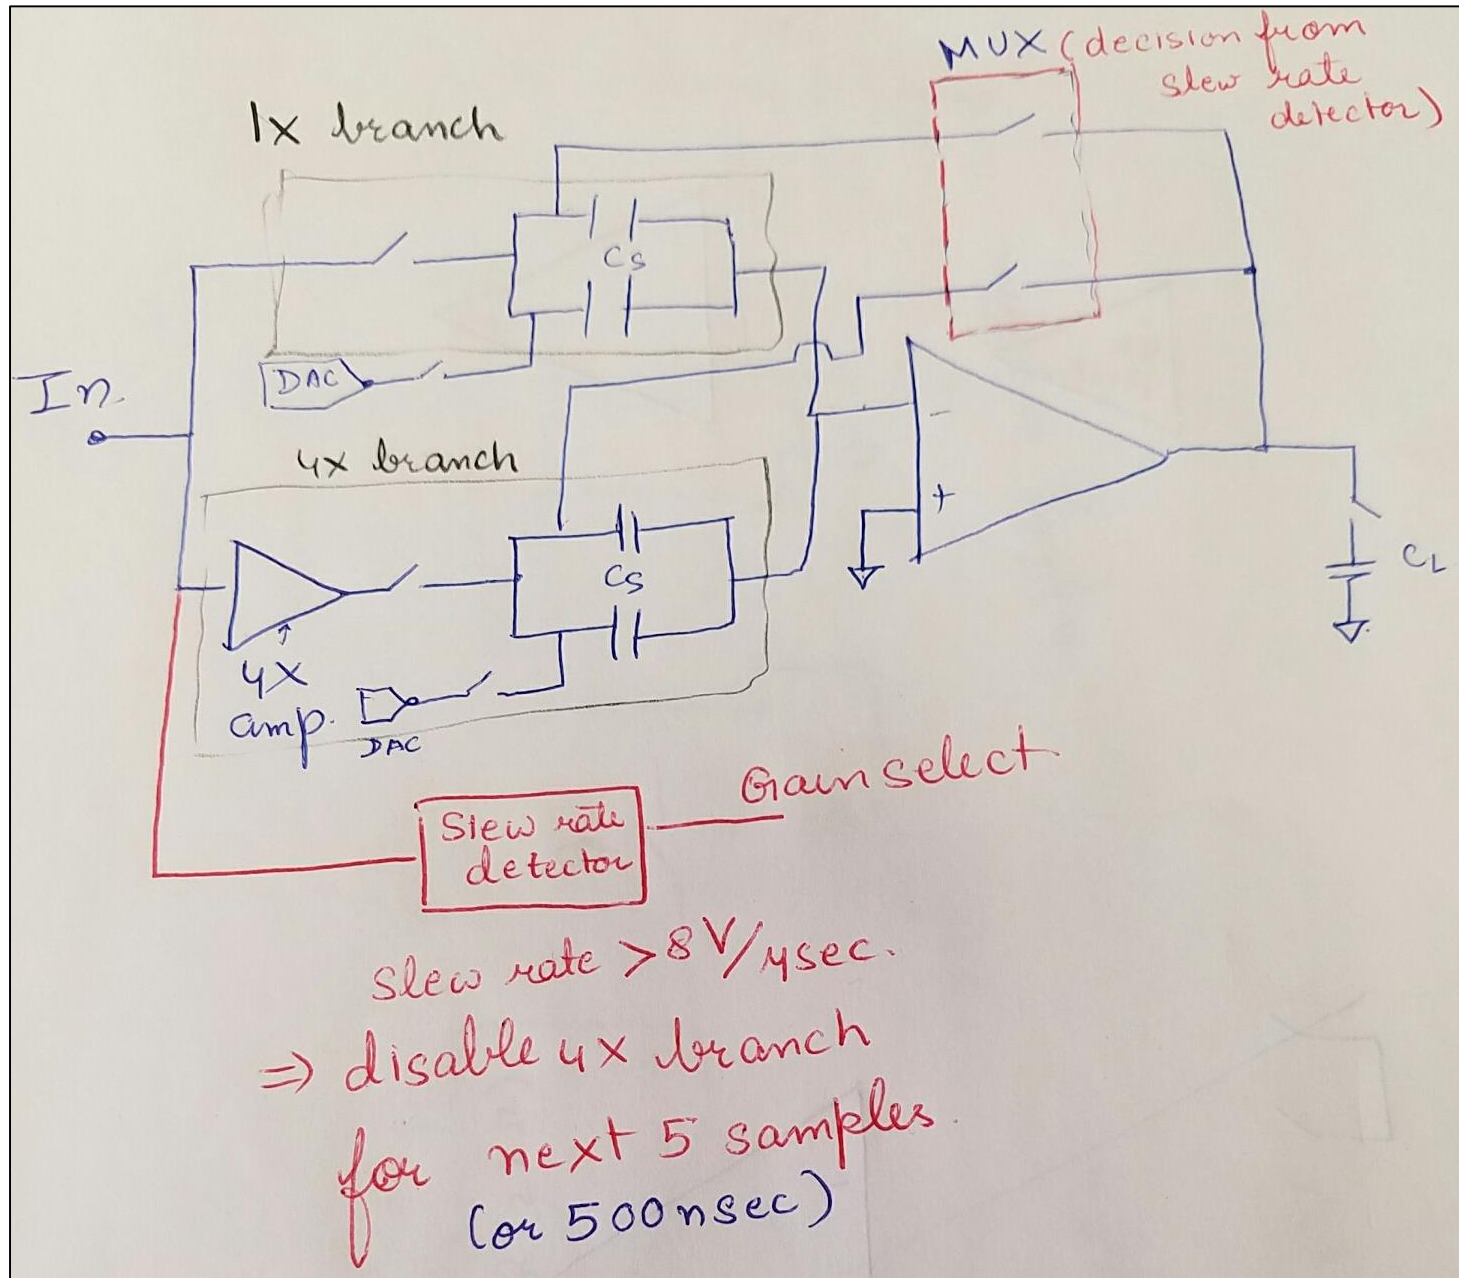 MUX (decision from
slew rate
detector)
1x branch
Cs
DAC
In
4x branch
-
+
Cs
CL
4X
amp.
DAC
Gain select
Slew rate
detector
Slew rate > 8 V/μsec.
⇒ disable 4x branch
for next 5 samples.
(or 500nsec)